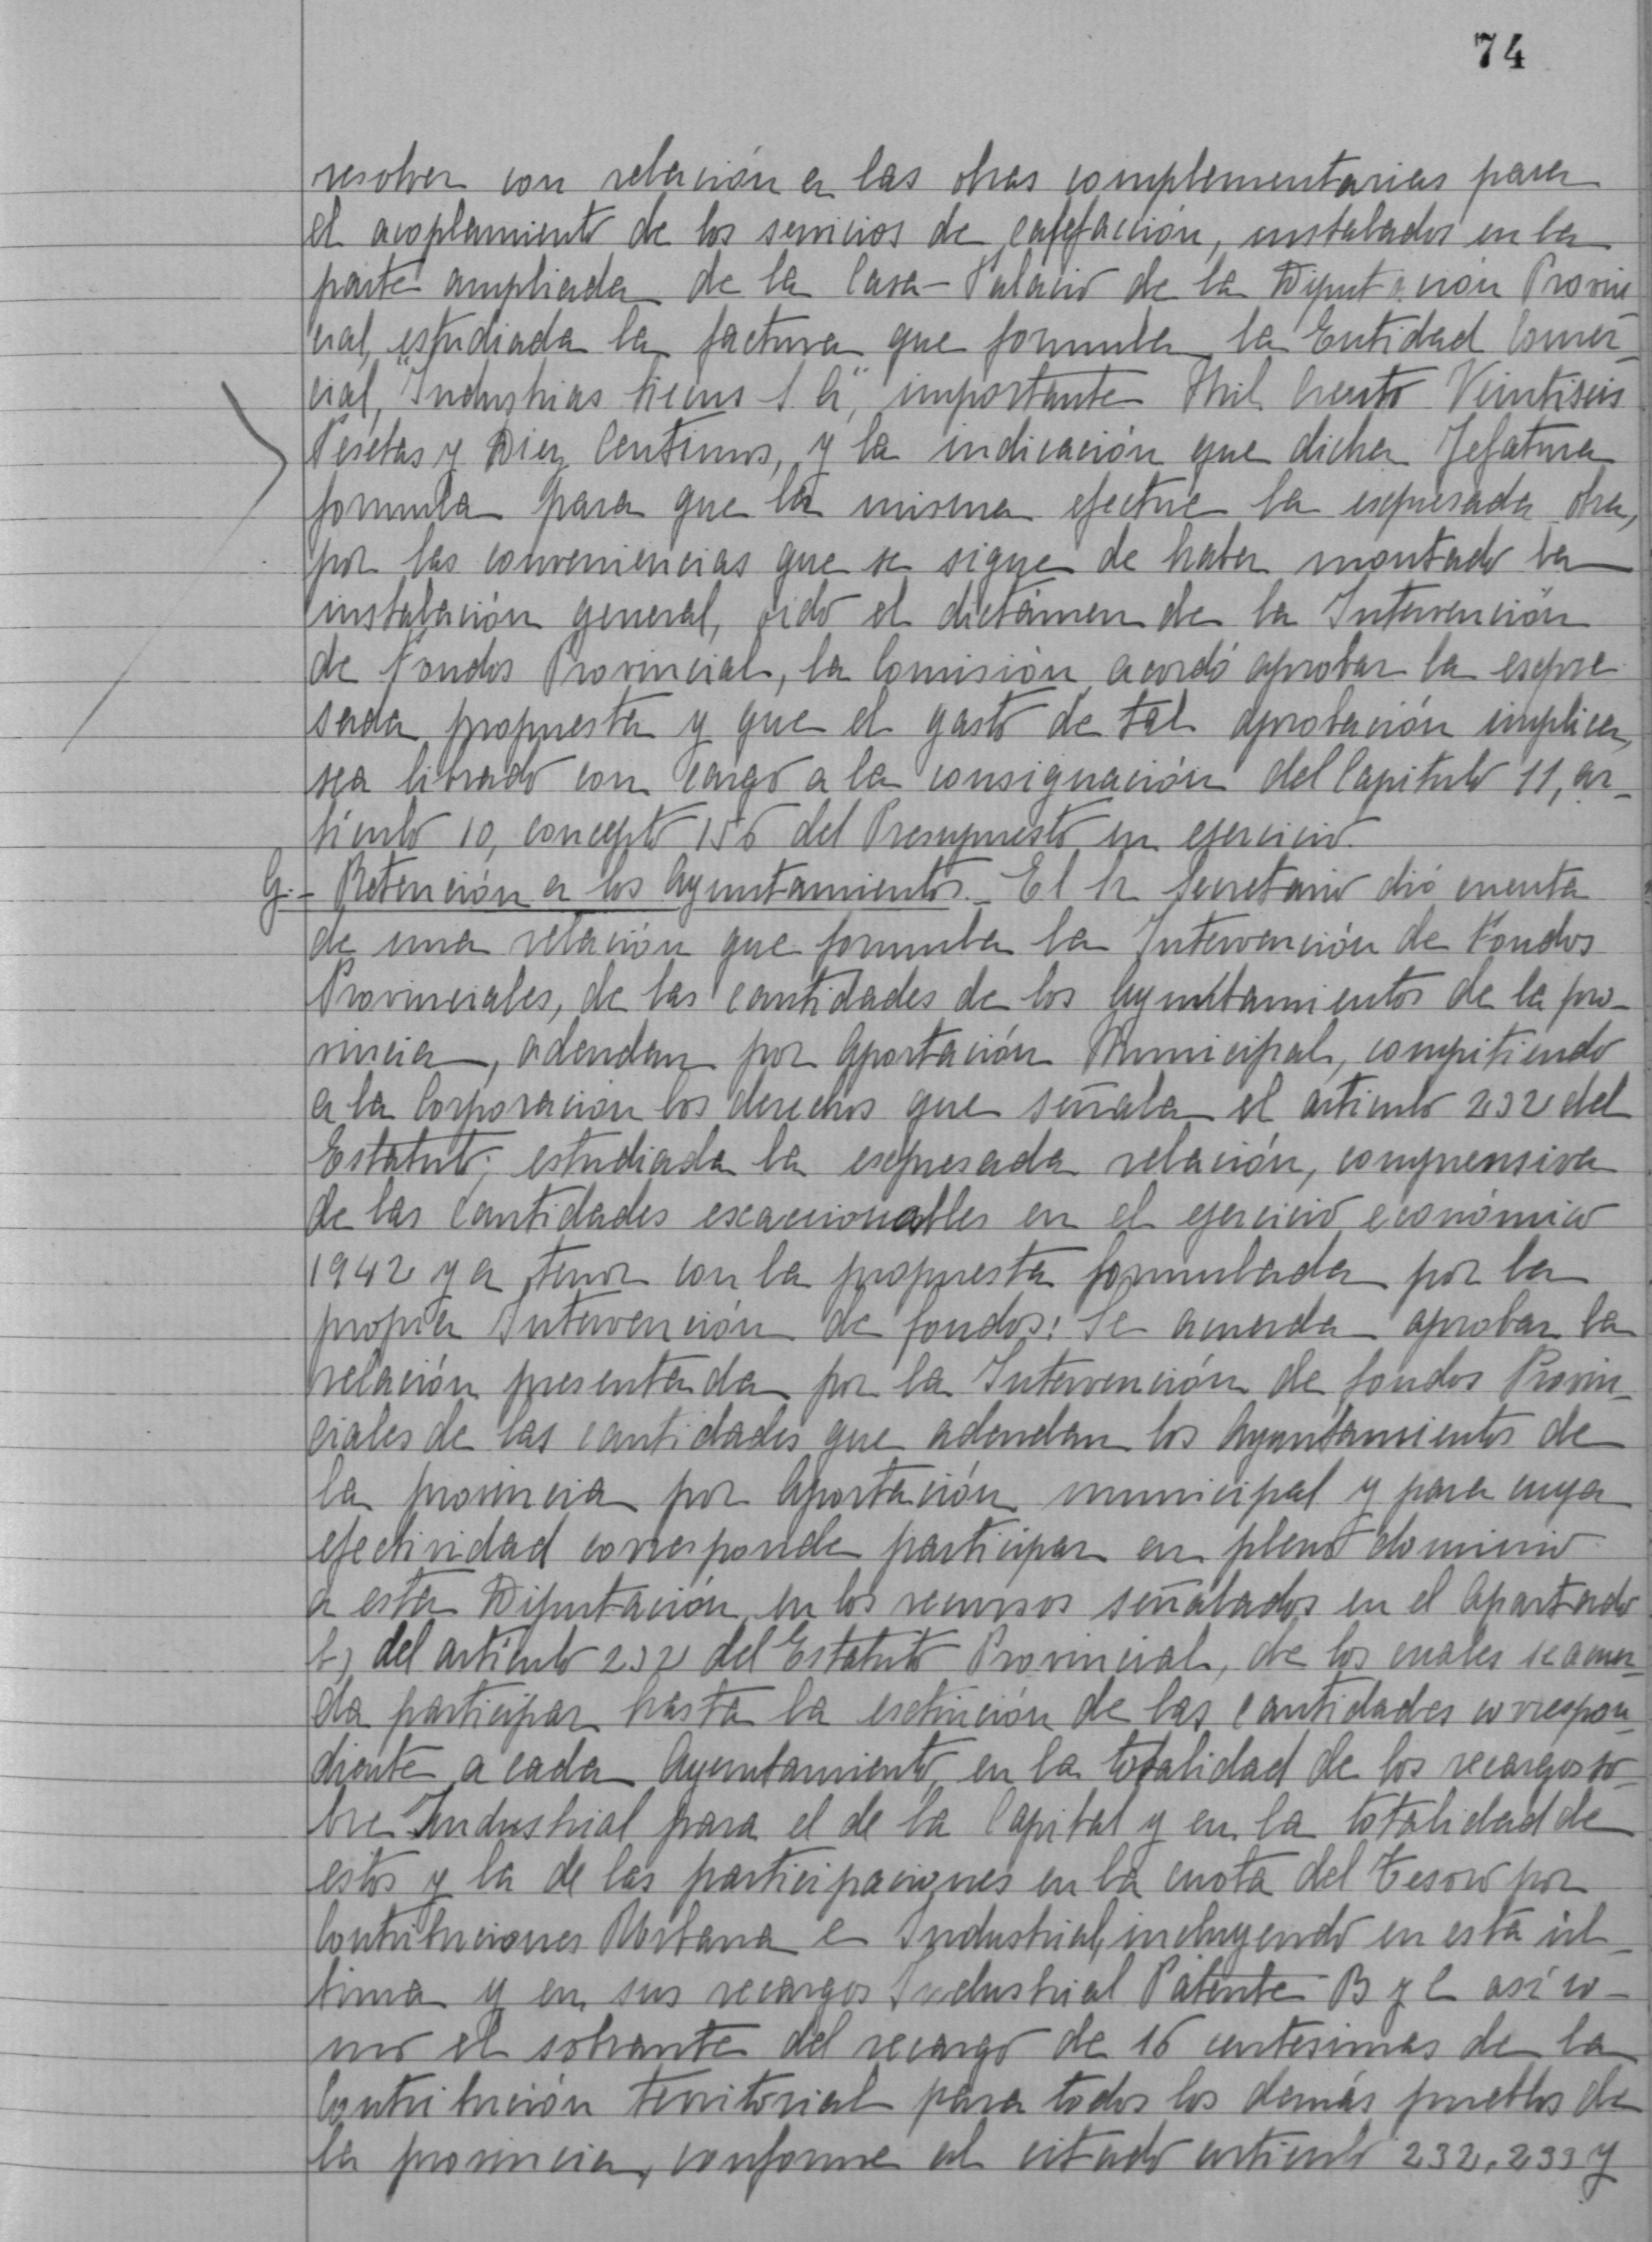 74
resolver con relación a las obras complementarias para
el acoplamiento de los servicios de calefacción, instalados en la
parte ampliada de la Casa-Palacio de la Diputación Provin-
cial, estudiada la factura que formula la Entidad Comer-
cial, "Industrias S. A", importante Mil Ciento Veintiseis
Pesetas y Diez Centimos, y la indicación que dicha Jefatura
formula para que la misma efectue la expresada obra,
por las conveniencias que se sigue de haber montado la
instalación general, oido el dictámen de la Intervención
de Fondos Provincial, la Comisión acordó aprobar la expre
sada propuesta y que el gasto de tal aprobación implica,
sea librado con cargo a la consignación del Capitulo 11, ar-
tículo 10, concepto 156 del Presupuesto en ejercicio.
G.- Retención a los Ayuntamientos.- El Sr Secretario dió cuenta
de una relación que formula la Intervención de Fondos
Provinciales, de las cantidades de los Ayuntamientos de la pro-
vincia, adeudan por Aportación Municipal, compitiendo
a la Corporación los derechos que señala el artículo 232 del
Estatuto; estudiada la expresada relación, comprensiva
de las cantidades exaccionables en el ejercicio económico
1942 y a tenor con la propuesta formulada por la
propia Intervención de fondos: Se acuerda aprobar la
relación presentada por la Intervención de fondos Provin-
ciales de las cantidades que adeudan los Ayuntamientos de
la provincia por Aportación municipal y para cuya
efectividad corresponde participar en pleno dominio
a esta Diputación, en los recursos señalados en el Apartado
b) del artículo 232 del Estatuto Provincial, de los cuales se acuer-
da participar hasta la extinción de las cantidades correspon-
diente a cada Ayuntamiento en la totalidad de los recargos so-
bre Industrial para el de la Capital y en la totalidad de
estos y la de las participaciones en la cuota del Tesoro por
Contribuciones Urbana e Industrial, incluyendo en esta úl-
tima y en sus recargos Industrial Patente B y C así co-
mo el sobrante del recargo de 16 centesimas de la
Contribución territorial para todos los demás pueblos de
la provincia, conforme al citado artículo 232, 233 y